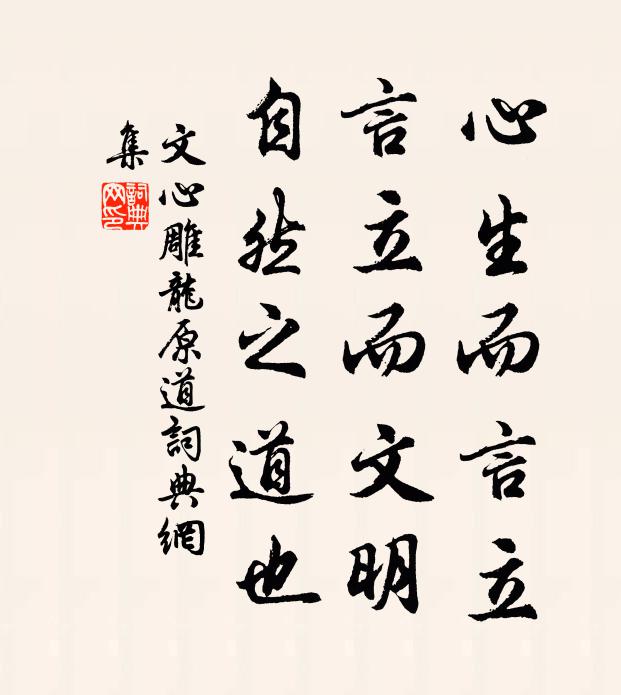 心生而言立
言立而文明
自然之道也
文心雕龍原道詞典網
集
詞典
网印